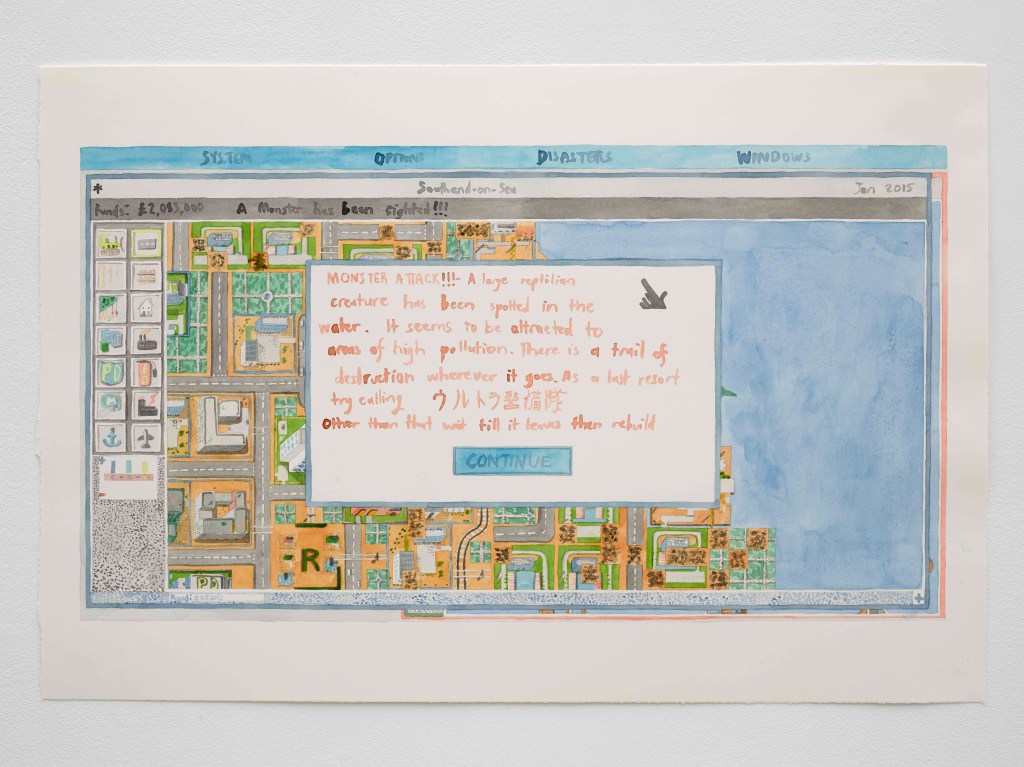 SYSTEM OPTIONS DISASTERS WINDOWS
* Southend-on-Sea Jan 2015
Funds: £2,083,000 A Monster has been sighted!!!
MONSTER ATTACK!!!- A large reptilian
creature has been spotted in the
water. It seems to be attracted to
areas of high pollution. There is a trail of
destruction wherever it goes. As a last resort
try calling ウルトラ警備隊
Other than that wait till it leaves then rebuild
CONTINUE
PD
R
PD